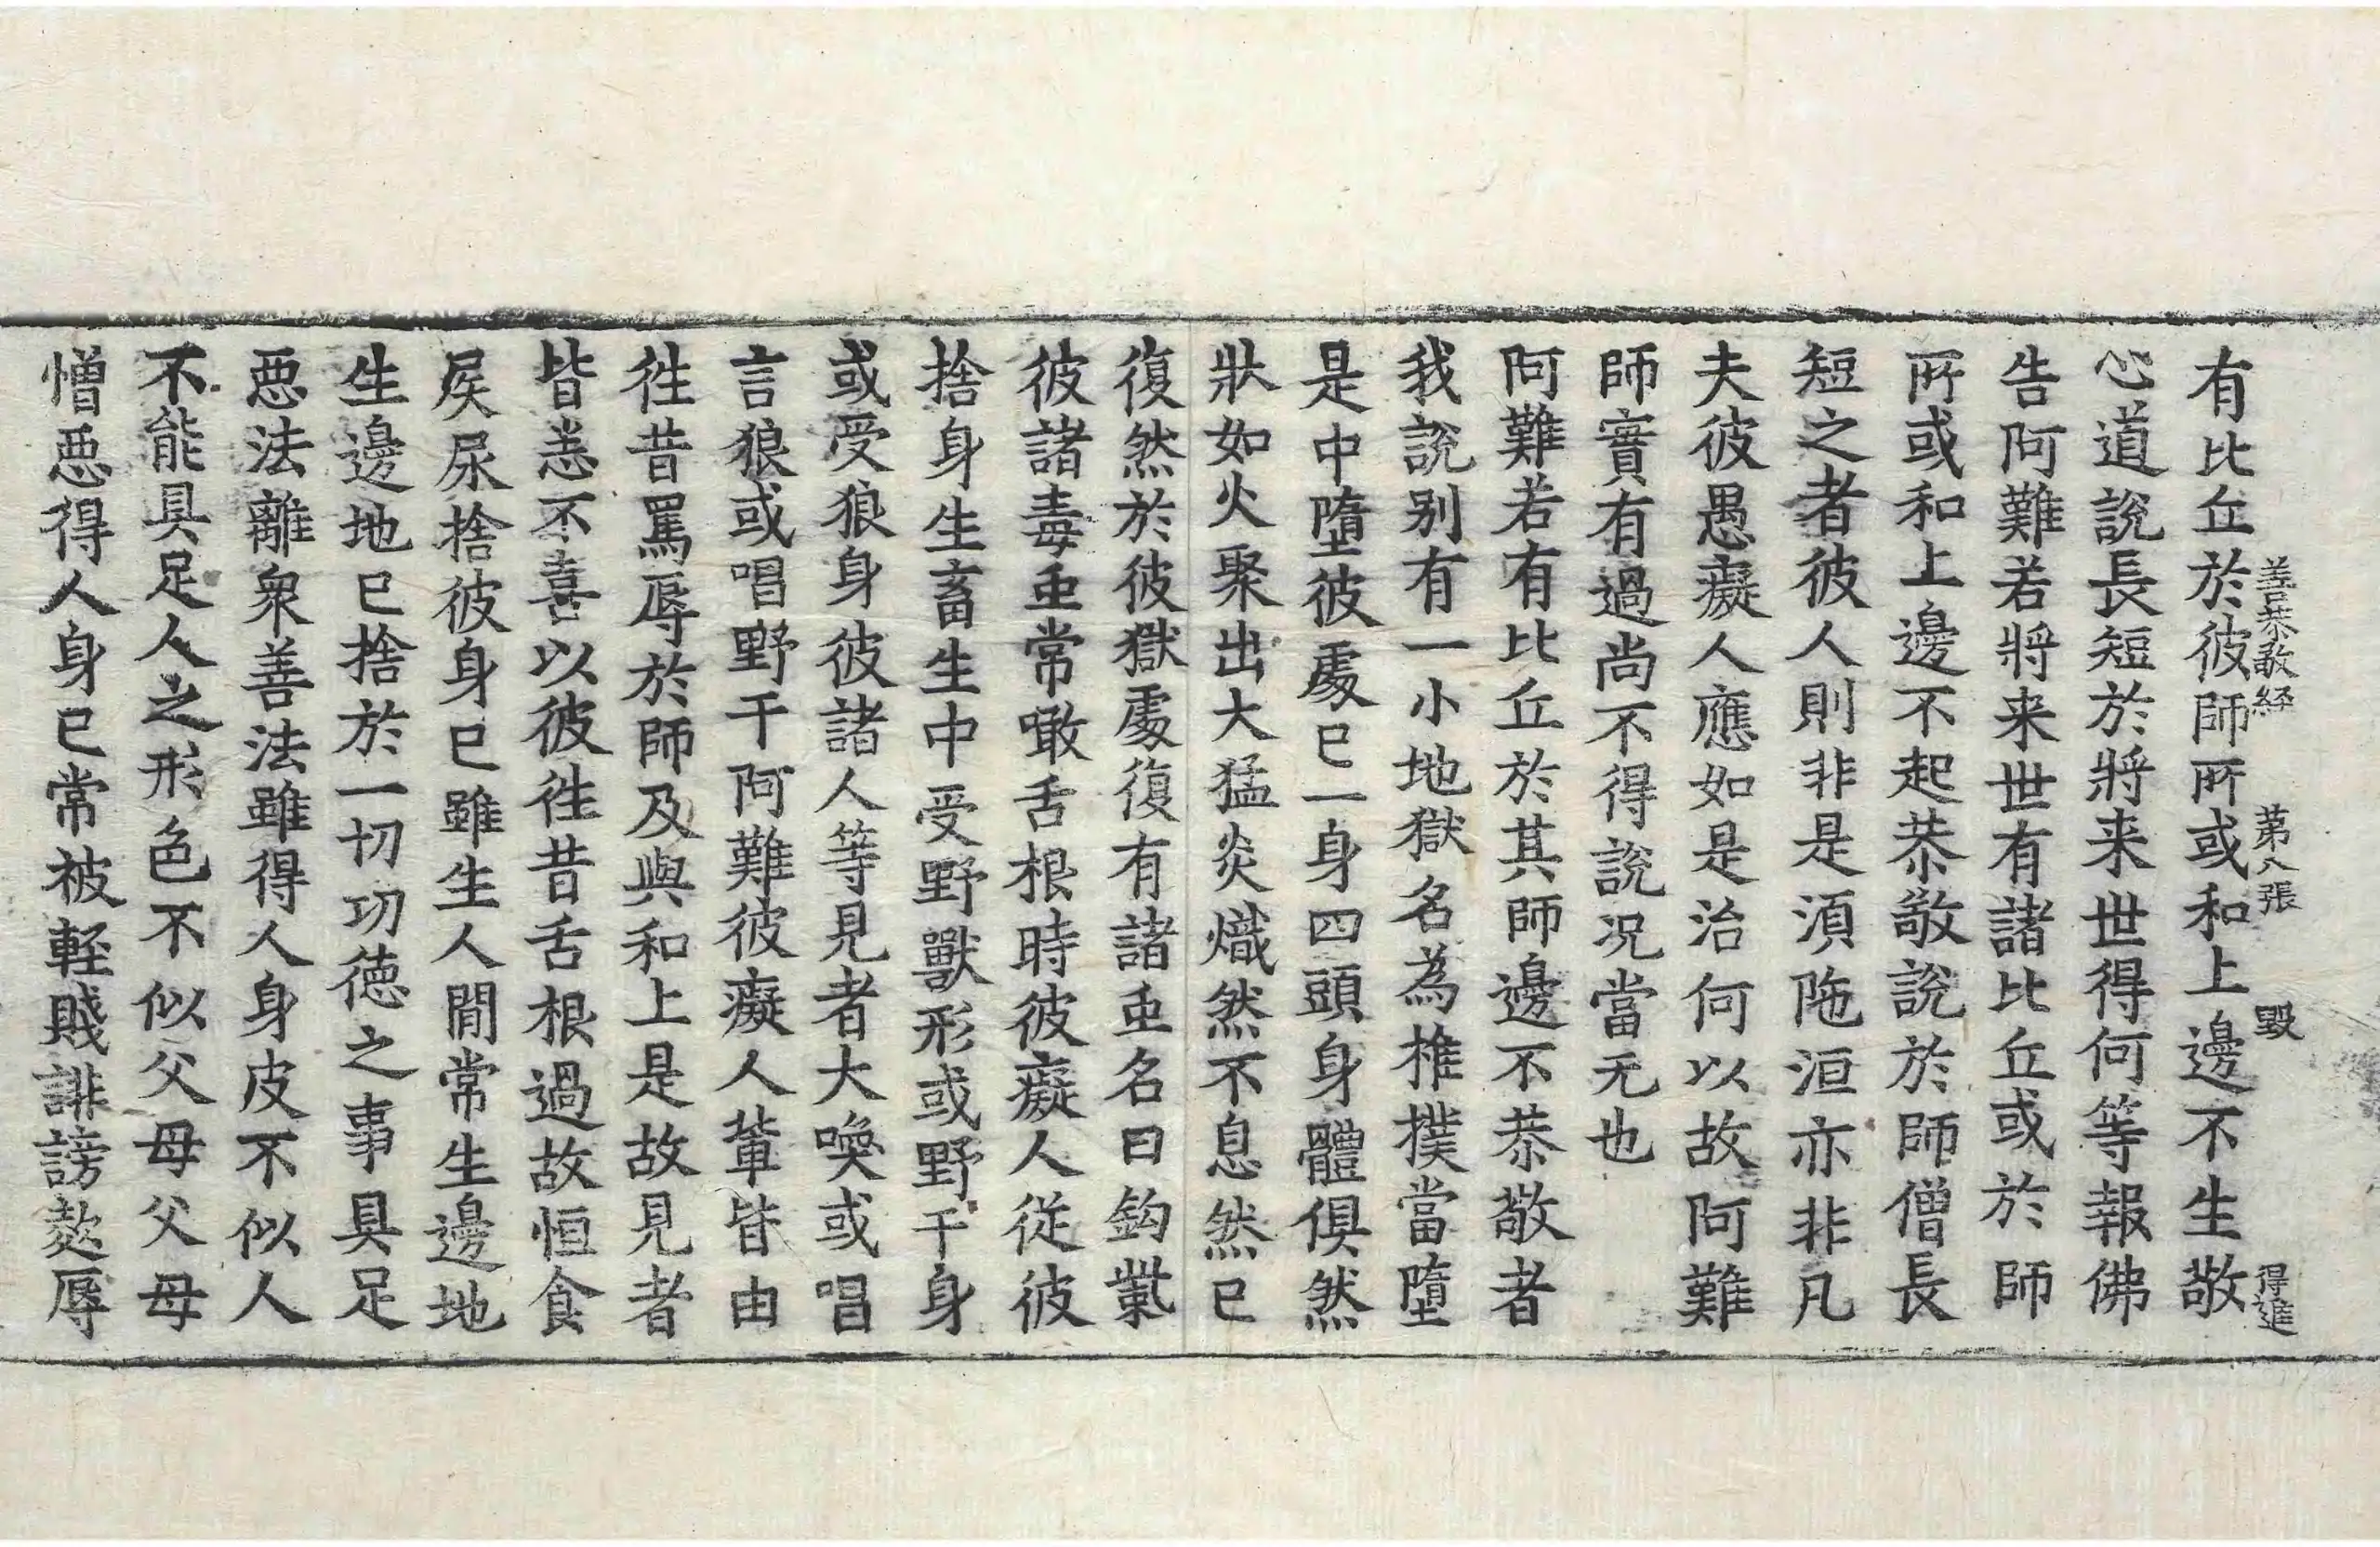 善恭敬経 第八張 毀 得進
有比丘於彼師所或和上邊不生敬
心道說長短於將来世得何等報佛
告阿難若將来世有諸比丘或於師
所或和上邊不起恭敬說於師僧長
短之者彼人則非是湏陁洹亦非凡
夫彼愚癡人應如是治何以故阿難
師實有過尚不得說况當无也
阿難若有比丘於其師邊不恭敬者
我說别有一小地獄名為椎撲當墮
是中墮彼處已一身四頭身體俱然
狀如火聚出大猛炎熾然不息然已
復然於彼獄處復有諸䖝名曰鈎㭰
彼諸毒䖝常噉舌根時彼癡人從彼
捨身生畜生中受野獸形或野干身
或受狼身彼諸人等見者大喚或唱
言狼或唱野干阿難彼癡人輩皆由
徃昔罵辱於師及與和上是故見者
皆恙不喜以彼徃昔舌根過故恒食
屎尿捨彼身已雖生人間常生邊地
生邊地已捨於一切功德之事具足
惡法離衆善法雖得人身皮不似人
不能具足人之形色不似父母父母
憎惡得人身已常被輕賤誹謗欺辱